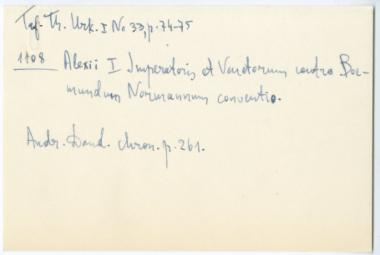 Taf.-Th. Urk. I No 33, p. 74-75
1108 Alexii I Imperatoris et Venetorum contra Boe-
mundum Normannum conventio.
Andr. Dand. chron. p. 261.